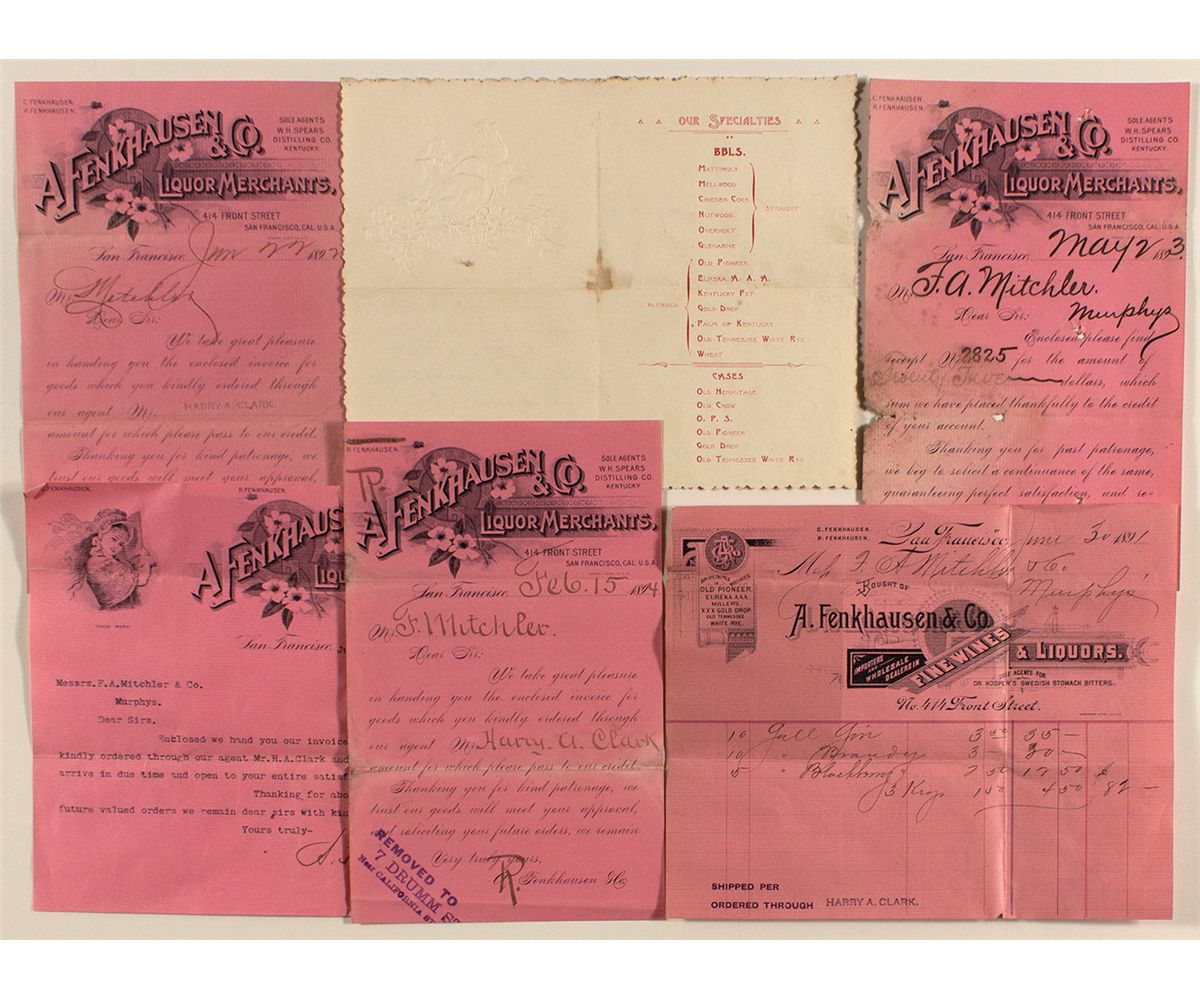 C. FENKHAUSEN.
R. FENKHAUSEN.
A. FENKHAUSEN & CO.
LIQUOR MERCHANTS,
SOLE AGENTS
W.H. SPEARS
DISTILLING CO.
KENTUCKY.
414 FRONT STREET
SAN FRANCISCO, CAL. U.S.A.
San Francisco, 22 189
Mr. Mitchler
Dear Sir:
We take great pleasure
in handing you the enclosed invoice for
goods which you kindly ordered through
our agent Mr. HARRY A. CLARK.
amount for which please pass to our credit.
Thanking you for kind patronage, we
trust our goods will meet your approval,
OUR SPECIALTIES
BBLS.
MATTINGLY
MELLWOOD
CHICKEN COCK
NUTWOOD
OVERHOLT
GLENARME
STRAIGHT
OLD PIONEER
EUREKA A. A. A.
KENTUCKY PET
GOLD DROP
PALM OF KENTUCKY
OLD TENNESSEE WHITE RYE
WHEAT
BLENDED
CASES
OLD HERMITAGE
OLD CROW
O. P. S.
OLD PIONEER
GOLD DROP
OLD TENNESSEE WHITE RYE
C. FENKHAUSEN.
R. FENKHAUSEN.
A. FENKHAUSEN & CO.
LIQUOR MERCHANTS,
SOLE AGENTS
W.H. SPEARS
DISTILLING CO.
KENTUCKY.
414 FRONT STREET
SAN FRANCISCO, CAL. U.S.A.
San Francisco, May 2 1893.
Mr. F. A. Mitchler.
Dear Sir: Murphys
Enclosed please find
receipt No. 2825 for the amount of
Twenty Five dollars, which
sum we have placed thankfully to the credit
of your account.
Thanking you for past patronage,
we beg to solicit a continuance of the same,
guaranteeing perfect satisfaction, and re-
FENKHAUSEN.
R. FENKHAUSEN.
A. FENKHAUS
LIQU
TRADE MARK
San Francisco, Ju
Messrs. F.A. Mitchler & Co.
Murphys.
Dear Sirs.
Enclosed we hand you our invoice
kindly ordered through our agent Mr.H.A.Clark and
arrive in due time and open to your entire satisf
Thanking for abo
future valued orders we remain dear sirs with kin
Yours truly-
C. FENKHAUSEN.
R. FENKHAUSEN.
A. FENKHAUSEN & CO.
LIQUOR MERCHANTS,
SOLE AGENTS
W.H. SPEARS
DISTILLING CO.
KENTUCKY.
414 FRONT STREET
SAN FRANCISCO, CAL. U.S.A.
San Francisco, Feb. 15 1894
Mr. F. Mitchler.
Dear Sir:
We take great pleasure
in handing you the enclosed invoice for
goods which you kindly ordered through
our agent Mr. Harry A. Clark
amount for which please pass to our credit.
Thanking you for kind patronage, we
trust our goods will meet your approval,
and soliciting your future orders, we remain
Very truly yours,
A. Fenkhausen & Co
REMOVED TO
7 DRUMM ST
Near CALIFORNIA ST
C. FENKHAUSEN.
R. FENKHAUSEN.
San Francisco, June 30 1891
F. A Mitchler & Co
Murphys
BOUGHT OF
A. Fenkhausen & Co
IMPORTERS AND WHOLESALE DEALERS IN
FINE WINES & LIQUORS.
SOLE AGENTS FOR
DR HOOPER'S SWEDISH STOMACH BITTERS.
No. 414 Front Street.
OLD PIONEER
EUREKA AAA
MILLERS
XXX GOLD DROP
OLD TENNESSEE
WHITE RYE.
10 Gall Gin 3 50 35 —
10 " Brandy 3 — 30 —
5 " 2 50 12 50
3 Kegs 1 50 4 50 82 —
SHIPPED PER
ORDERED THROUGH HARRY A. CLARK.